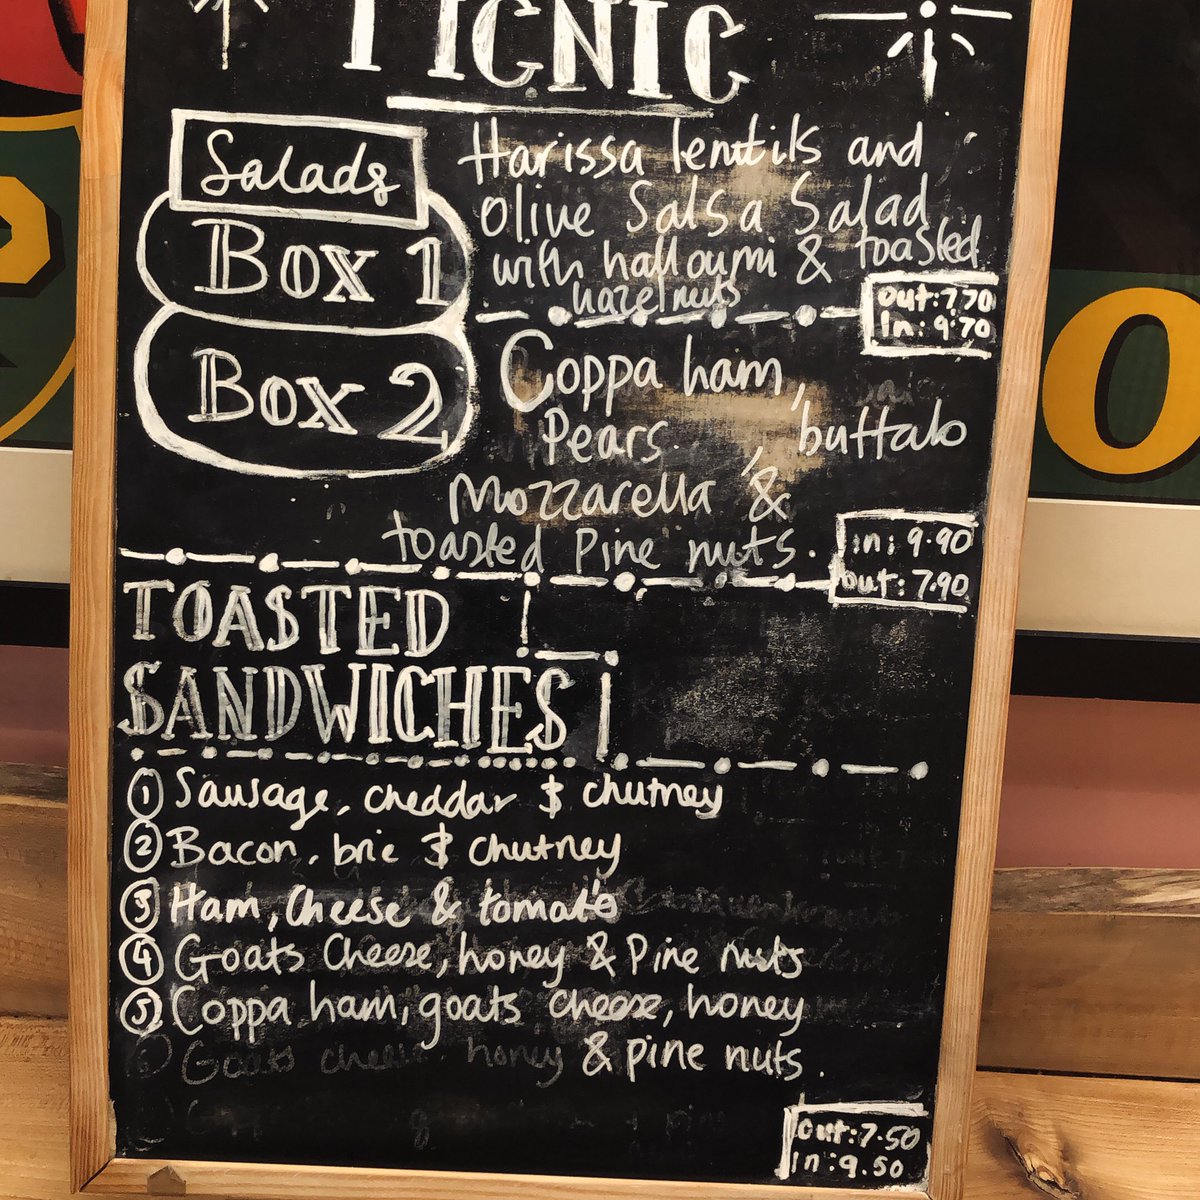 PICNIC
Salads
Box 1
Harissa lentils and
olive Salsa Salad
with halloumi & toasted
hazelnuts
out: 7.70
in: 9.70
Box 2
Coppa ham,
Pears, buffalo
Mozzarella &
toasted Pine nuts.
in: 9.90
out: 7.90
TOASTED
SANDWICHES
1 Sausage, cheddar & chutney
2 Bacon, brie & chutney
3 Ham, Cheese & tomato
4 Goats Cheese, honey & Pine nuts
5 Coppa ham, goats cheese, honey
6 Goats cheese honey & pine nuts.
out: 7.50
in: 9.50
O